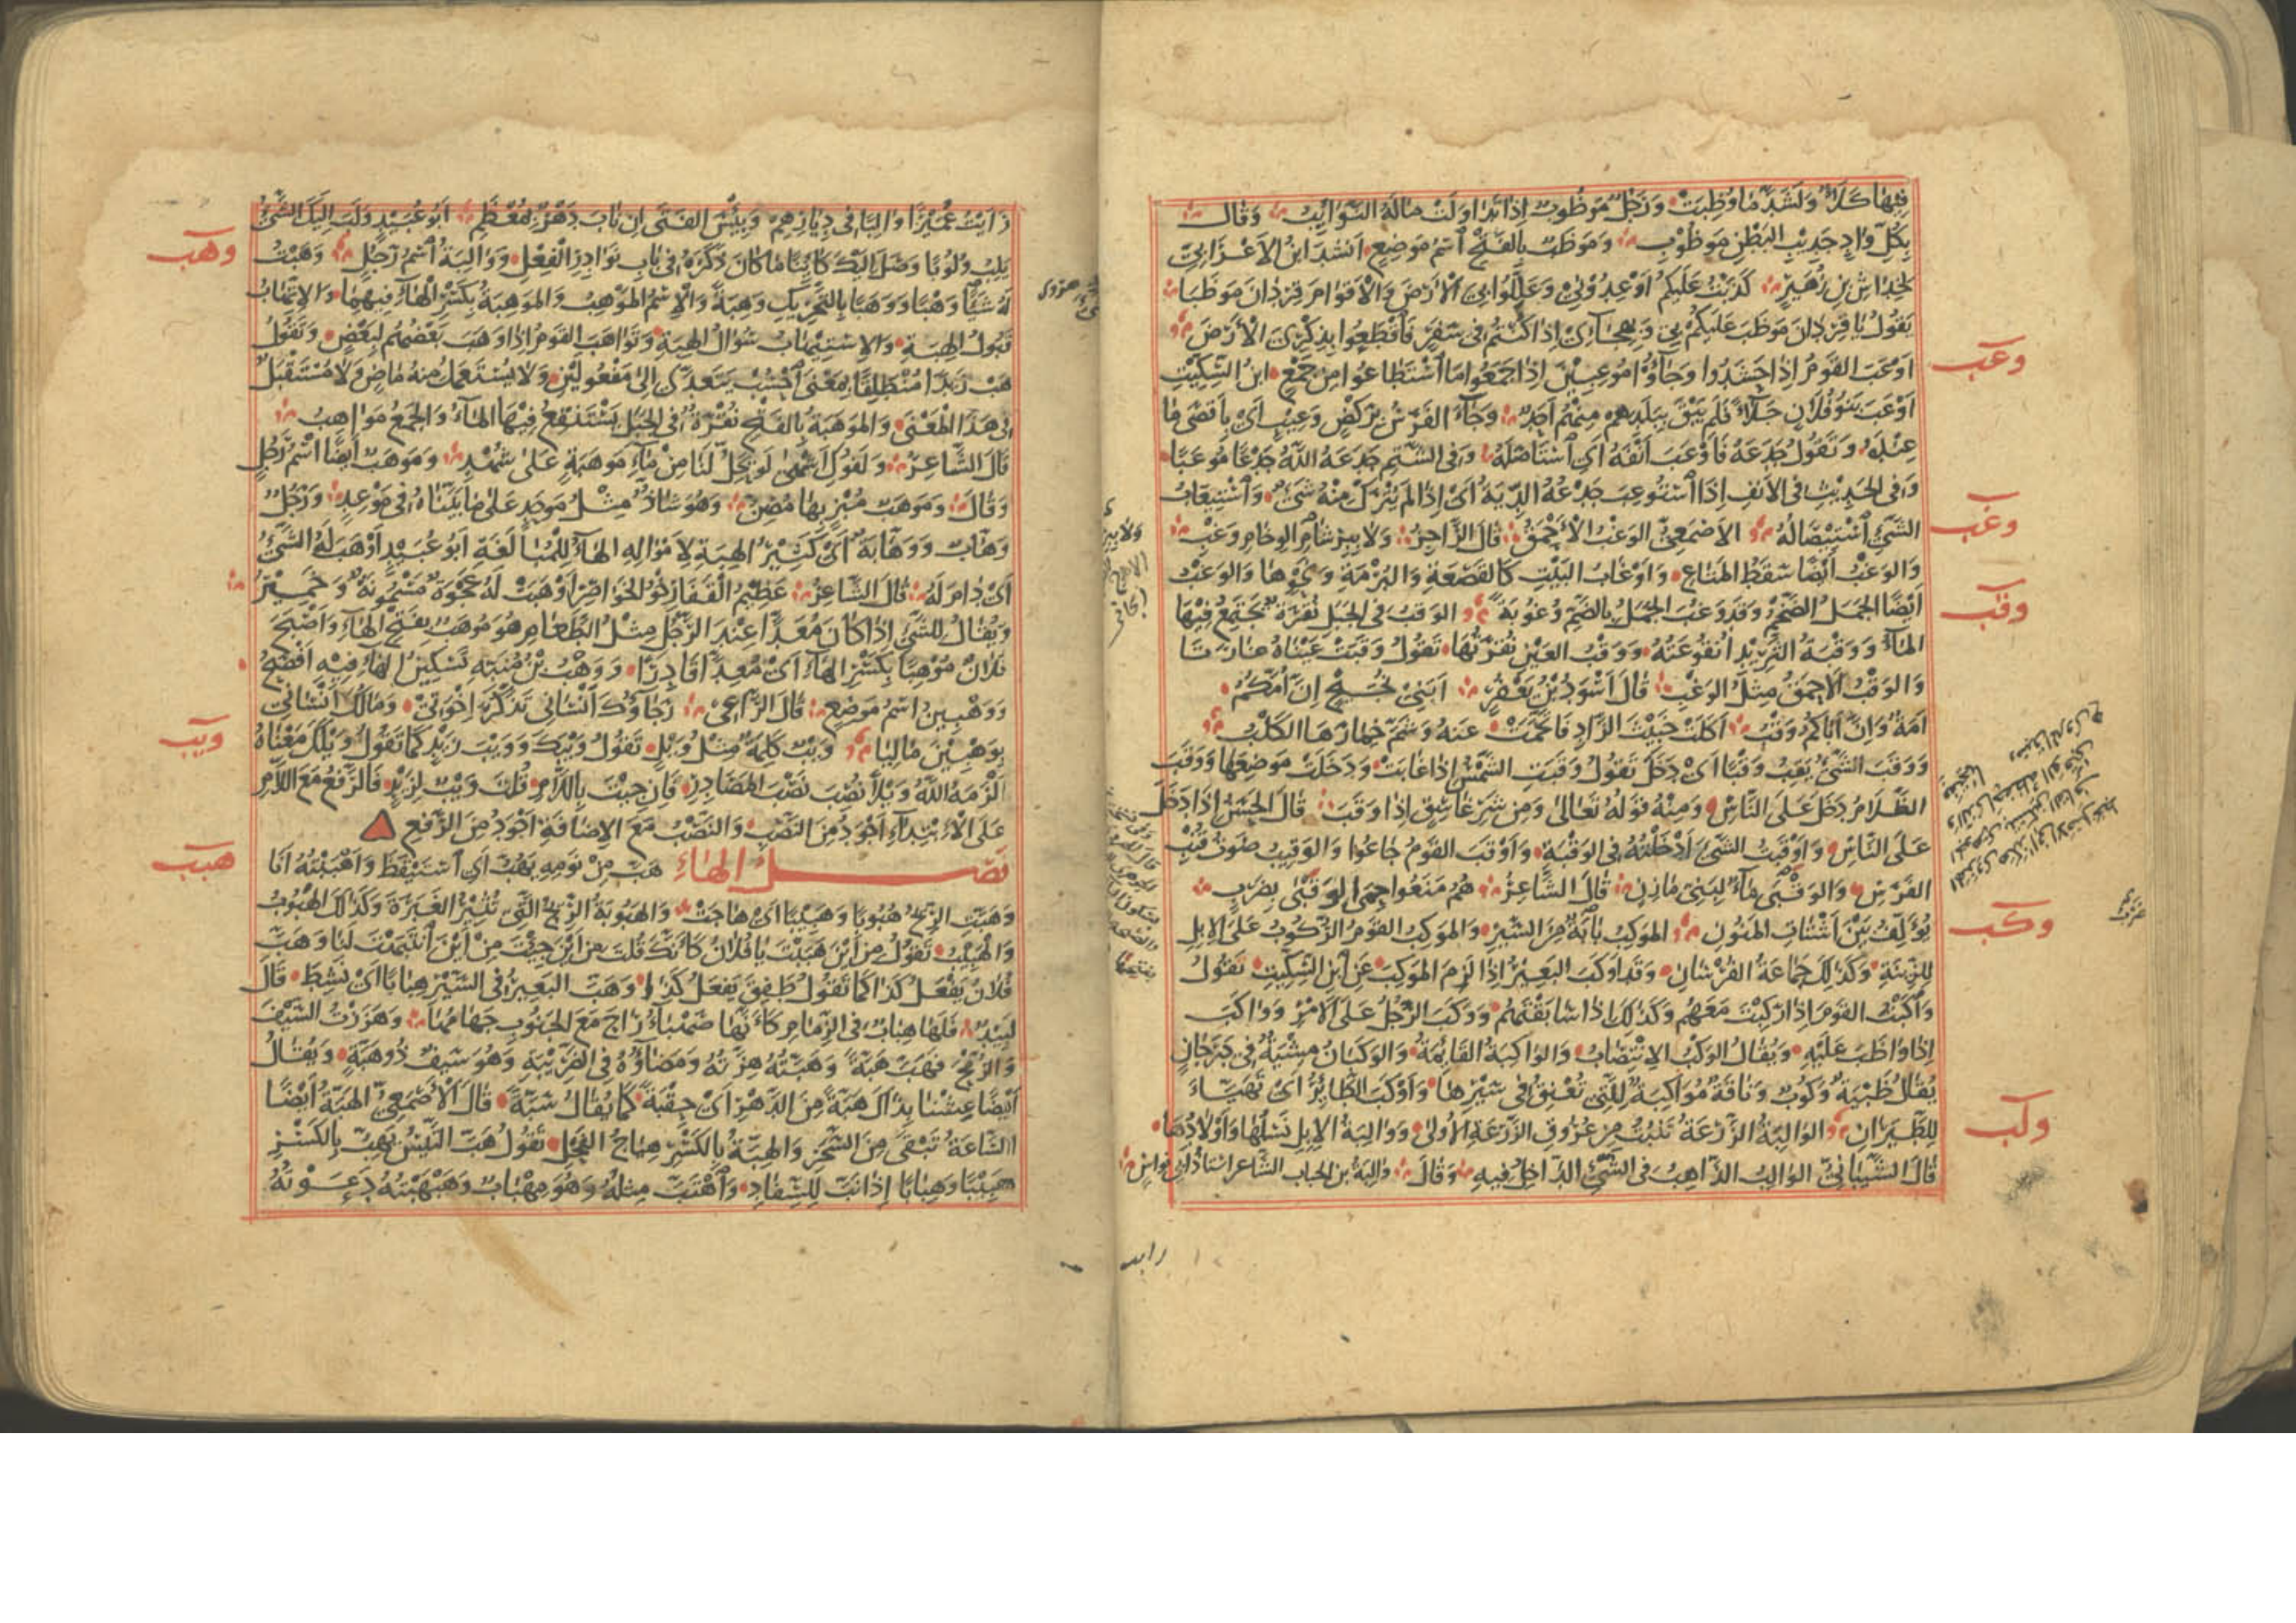 فِيهَا كَلَأٌ وَلَشَدَّ مَا وُظِبَتْ وَرَجُلٌ مَوْظُوبٌ إِذَا تَدَاوَلَتْ مَالَهُ النَّوَائِبُ وَقَالَ
بِكُلِّ وَادٍ جَدِيبِ البَطْنِ مَوْظُوبِ وَمَوْظَبٌ بِالفَتْحِ اسْمُ مَوْضِعٍ أَنْشَدَ ابْنُ الأَعْرَابِيِّ
لِخِدَاشِ بْنِ زُهَيْرٍ كَذَبْتُ عَلَيْكُمْ أَوْعِدُونِي وَعَلِّلُوا بِيَ الأَرْضَ وَالأَقْوَامَ قِرْدَانَ مَوْظَبَا
يَقُولُ يَا قِرْدَانَ مَوْظَبَ عَلَيْكُمْ بِي وَبِهِجَائِي إِذَا كُنْتُمْ فِي سَفَرٍ فَاقْطَعُوا بِذِكْرِيَ الأَرْضَ
وعب
أَوْعَبَ القَوْمُ إِذَا حَشَدُوا وَجَاؤُا مُوعِبِينَ إِذَا جَمَعُوا مَا اسْتَطَاعُوا مِنْ جَمْعٍ ابْنُ السِّكِّيتِ
أَوْعَبَ بَنُو فُلَانٍ جَلَاءً فَلَمْ يَبْقَ بِبَلَدِهِمْ مِنْهُمْ أَحَدٌ وَجَاءَ الفَرَسُ بِرَكْضٍ وَعِيبٍ أَيْ بِأَقْصَى مَا
عِنْدَهُ وَتَقُولُ جَدَعَهُ فَأَوْعَبَ أَنْفَهُ أَيِ اسْتَأْصَلَهُ وَفِي الشَّتْمِ جَدَعَهُ اللّٰهُ جَدْعًا مُوعَبًا
وَفِي الحَدِيثِ فِي الأَنْفِ إِذَا اسْتُوعِبَ جَدْعُهُ الدِّيَةُ أَيْ إِذَا لَمْ يُتْرَكْ مِنْهُ شَيْءٌ وَاسْتِيعَابُ
وغب
الشَّيْءِ اسْتِيصَالُهُ الأَصْمَعِيُّ الوَغْبُ الأَحْمَقُ قَالَ الرَّاجِزُ وَلَا بِبِرْشَامِ الوِخَامِ وَغْبِ
وَالوَغْبُ أَيْضًا سَقَطُ المَتَاعِ وَأَوْغَابُ البَيْتِ كَالقَصْعَةِ وَالبُرْمَةِ وَنَحْوِهَا وَالوَغْبُ
وقب
أَيْضًا الجَمَلُ الضَّخْمُ وَقَدْ وَغُبَ الجَمَلُ بِالضَّمِّ وُغُوبَةً الوَقْبُ فِي الجَبَلِ نُقْرَةٌ يَجْتَمِعُ فِيهَا
المَاءُ وَوَقْبَةُ الثَّرِيدِ أُنْقُوعَتُهُ وَوَقْبُ العَيْنِ نُقْرَتُهَا تَقُولُ وَقَبَتْ عَيْنَاهُ غَارَتَا
وَالوَقْبُ الأَحْمَقُ مِثْلُ الوَغْبِ قَالَ أَسْوَدُ بْنُ يَعْفُرَ أَبَنِي نُجَيْحٍ إِنَّ أُمَّكُمُ
أَمَةٌ وَإِنَّ أَبَاكُمُ وَقْبُ أَكَلَتْ خَبِيثَ الزَّادِ فَاتَّخَمَتْ عَنْهُ وَشَمَّ خِمَارَهَا الكَلْبُ
وَوَقَبَ الشَّيْءُ يَقِبُ وَقْبًا أَيْ دَخَلَ تَقُولُ وَقَبَتِ الشَّمْسُ إِذَا غَابَتْ وَدَخَلَتْ مَوْضِعَهَا وَوَقَبَ
الظَّلَامُ دَخَلَ عَلَى النَّاسِ وَمِنْهُ قَوْلُهُ تَعَالَى وَمِنْ شَرِّ غَاسِقٍ إِذَا وَقَبَ قَالَ الحَسَنُ إِذَا دَخَلَ
عَلَى النَّاسِ وَأَوْقَبْتُ الشَّيْءَ أَدْخَلْتُهُ فِي الوَقْبَةِ وَأَوْقَبَ القَوْمُ جَاعُوا وَالوَقِيبُ صَوْتُ قُنْبِ
الفَرَسِ وَالوَقْبَى مَاءٌ لِبَنِي مَازِنٍ قَالَ الشَّاعِرُ هُمُ مَنَعُوا حِمَى الوَقَبَى بِضَرْبٍ
وكب
يُؤَلِّفُ بَيْنَ أَشْتَاتِ المَنُونِ المَوْكِبُ بَابَةٌ مِنَ السَّيْرِ وَالمَوْكِبُ القَوْمُ الرُّكُوبُ عَلَى الإِبِلِ
لِلزِّينَةِ وَكَذَلِكَ جَمَاعَةُ الفُرْسَانِ وَقَدْ أَوْكَبَ البَعِيرُ إِذَا لَزِمَ المَوْكِبَ عَنِ ابْنِ السِّكِّيتِ تَقُولُ
وَاكَبْتُ القَوْمَ إِذَا رَكِبْتَ مَعَهُمْ وَكَذَلِكَ إِذَا سَابَقْتَهُمْ وَوَكَبَ الرَّجُلُ عَلَى الأَمْرِ وَوَاكَبَ
إِذَا وَاظَبَ عَلَيْهِ وَيُقَالُ الوَكْبُ الاِنْتِصَابُ وَالوَاكِبَةُ القَائِمَةُ وَالوَكَبَانُ مِشْيَةٌ فِي دَرَجَانٍ
يُقَالُ ظَبْيَةٌ وَكُوبٌ وَنَاقَةٌ مُوَاكِبَةٌ لِلَّتِي تُعْنِقُ فِي سَيْرِهَا وَأَوْكَبَ الطَّائِرُ أَيْ تَهَيَّأَ
ولب
لِلطَّيَرَانِ الوَالِبَةُ الزَّرْعَةُ تَنْبُتُ مِنْ عُرُوقِ الزَّرْعَةِ الأُولَى وَوَالِبَةُ الإِبِلِ نَسْلُهَا وَأَوْلَادُهَا
قَالَ الشَّيْبَانِيُّ الوَالِبُ الذَّاهِبُ فِي الشَّيْءِ الدَّاخِلُ فِيهِ وَقَالَ والبة بن الحباب الشاعر استاذ ابي نواس
رايت
رَأَيْتُ عُمَيْرًا وَالِبًا فِي دِيَارِهِمْ وَبِئْسَ الفَتَى إِنْ نَابَ دَهْرٌ بِمُعْظَمِ أَبُو عُبَيْدٍ وَلَبَ إِلَيْكَ الشَّيْءُ
وهب
يَلِبُ وُلُوبًا وَصَلَ إِلَيْكَ كَائِنًا مَا كَانَ ذَكَرَهُ فِي بَابِ نَوَادِرِ الفِعْلِ وَوَالِبَةُ اسْمُ رَجُلٍ وَهَبْتُ
لَهُ شَيْئًا وَهْبًا وَوَهَبًا بِالتَّحْرِيكِ وَهِبَةً وَالاِسْمُ المَوْهِبُ وَالمَوْهِبَةُ بِكَسْرِ الهَاءِ فِيهِمَا وَالاِتِّهَابُ
قَبُولُ الهِبَةِ وَالاِسْتِيهَابُ سُؤَالُ الهِبَةِ وَتَوَاهَبَ القَوْمُ إِذَا وَهَبَ بَعْضُهُمْ لِبَعْضٍ وَتَقُولُ
هَبْ زَيْدًا مُنْطَلِقًا بِمَعْنَى احْسُبْ يَتَعَدَّى إِلَى مَفْعُولَيْنِ وَلَا يُسْتَعْمَلُ مِنْهُ مَاضٍ وَلَا مُسْتَقْبَلٌ
فِي هَذَا المَعْنَى وَالمَوْهَبَةُ بِالفَتْحِ نُقْرَةٌ فِي الجَبَلِ يَسْتَنْقِعُ فِيهَا المَاءُ وَالجَمْعُ مَوَاهِبُ
قَالَ الشَّاعِرُ وَلَفُوكِ أَشْهَى لَوْ يَحِلُّ لَنَا مِنْ مَاءِ مَوْهَبَةٍ عَلَى شُهْدِ وَمَوْهَبٌ أَيْضًا اسْمُ رَجُلٍ
وَقَالَ وَمَوْهَبٌ مُبْزٍ بِهَا مُصِنُّ وَهُوَ شَاذٌّ مِثْلُ مَوْحَدٍ عَلَى مَا بَيَّنَّاهُ فِي مَوْعِدٍ وَرَجُلٌ
وَهَّابٌ وَوَهَّابَةٌ أَيْ كَثِيرُ الهِبَةِ لِأَمْوَالِهِ الهَاءُ لِلْمُبَالَغَةِ أَبُو عُبَيْدٍ أَوْهَبَ لَهُ الشَّيْءُ
أَيْ دَامَ لَهُ قَالَ الشَّاعِرُ عَظِيمُ القَفَا رِخْوُ الخَوَاصِرِ أَوْهَبَتْ لَهُ عَجْوَةٌ مَسْمُونَةٌ وَخَمِيرُ
وَيُقَالُ لِلشَّيْءِ إِذَا كَانَ مُعَدًّا عِنْدَ الرَّجُلِ مِثْلُ الطَّعَامِ هُوَ مُوهَبٌ بِفَتْحِ الهَاءِ وَأَصْبَحَ
فُلَانٌ مُوهِبًا بِكَسْرِ الهَاءِ أَيْ مُعِدًّا قَادِرًا وَوَهْبُ بْنُ مُنَبِّهٍ تَسْكِينُ الهَاءِ فِيهِ أَفْصَحُ
وَوَهْبِينُ اسْمُ مَوْضِعٍ قَالَ الرَّاعِي رَجَاؤُكَ أَنْسَانِي تَذَكُّرَ إِخْوَتِي وَمَالُكَ أَنْسَانِي
ويب
بِوَهْبِينَ مَالِيَا وَيْبٌ كَلِمَةٌ مِثْلُ وَيْلٍ تَقُولُ وَيْبَكَ وَوَيْبَ زَيْدٍ كَمَا تَقُولُ وَيْلَكَ مَعْنَاهُ
أَلْزَمَهُ اللّٰهُ وَيْلًا نُصِبَ نَصْبَ المَصَادِرِ فَإِنْ جِئْتَ بِاللَّامِ قُلْتَ وَيْبٌ لِزَيْدٍ فَالرَّفْعُ مَعَ اللَّامِ
عَلَى الاِبْتِدَاءِ أَجْوَدُ مِنَ النَّصْبِ وَالنَّصْبُ مَعَ الإِضَافَةِ أَجْوَدُ مِنَ الرَّفْعِ
هبب
فَصْلُ الهَاءِ هَبَّ مِنْ نَوْمِهِ يَهُبُّ أَيِ اسْتَيْقَظَ وَأَهْبَبْتُهُ أَنَا
وَهَبَّتِ الرِّيحُ هُبُوبًا وَهَبِيبًا أَيْ هَاجَتْ وَالهَبُوبَةُ الرِّيحُ الَّتِي تُثِيرُ الغَبَرَةَ وَكَذَلِكَ الهَبُوبُ
وَالهَبِيبُ تَقُولُ مِنْ أَيْنَ هَبَبْتَ يَا فُلَانُ كَأَنَّكَ قُلْتَ مِنْ أَيْنَ جِئْتَ مِنْ أَيْنَ انْتَبَهْتَ لَنَا وَهَبَّ
فُلَانٌ يَفْعَلُ كَذَا كَمَا تَقُولُ طَفِقَ يَفْعَلُ كَذَا وَهَبَّ البَعِيرُ فِي السَّيْرِ هِبَابًا أَيْ نَشِطَ قَالَ
لَبِيدٌ فَلَهَا هِبَابٌ فِي الزِّمَامِ كَأَنَّهَا صَهْبَاءُ رَاحَ مَعَ الجَنُوبِ جَهَامُهَا وَهَزَزْتُ السَّيْفَ
وَالرُّمْحَ فَهَبَّ هَبَّةً وَهَبَّتُهُ هِزَّتُهُ وَمَضَاؤُهُ فِي الضَّرِيبَةِ وَهُوَ سَيْفٌ ذُو هَبَّةٍ وَيُقَالُ
أَيْضًا عِشْنَا بِذَاكَ هَبَّةً مِنَ الدَّهْرِ أَيْ حِقْبَةً كَمَا يُقَالُ سَبَّةً قَالَ الأَصْمَعِيُّ الهَبَّةُ أَيْضًا
السَّاعَةُ تَبْقَى مِنَ السَّحَرِ وَالهِبَّةُ بِالكَسْرِ هِيَاجُ الفَحْلِ تَقُولُ هَبَّ التَّيْسُ يَهِبُّ بِالكَسْرِ
هَبِيبًا وَهِبَابًا إِذَا نَبَّ لِلسِّفَادِ وَاهْتَبَّ مِثْلُهُ وَهُوَ مِهْبَابٌ وَهَبْهَبْتُهُ دَعَوْتُهُ